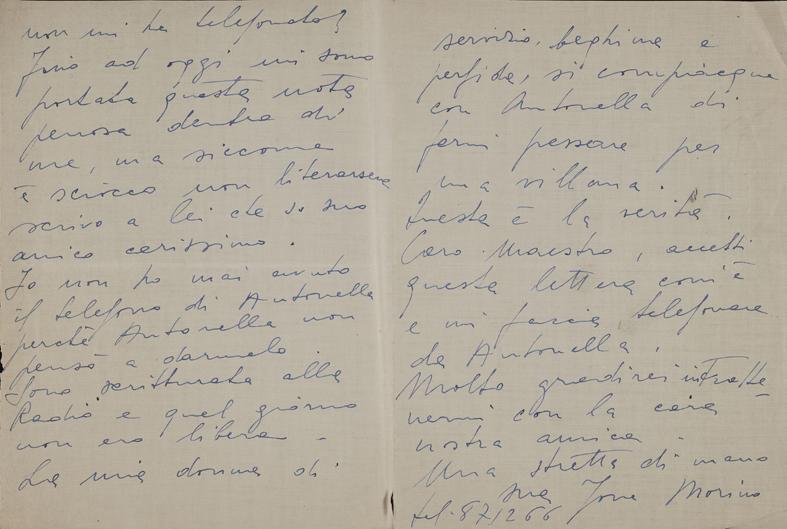 non mi ha telefonato?
Fino ad oggi mi sono
portata questa nota
penosa dentro di
me, ma siccome
è sciocco non liberarsene
scrivo a lei che so suo
amico carissimo.
Io non ho mai avuto
il telefono di Antonella
perché Antonella non
pensò a darmelo.
Sono scritturata alla
Radio e quel giorno
non ero libera -
La mia donna di
servizio, beghina e
perfida, si compiacque
con Antonella di
farmi passare per
una villana.
Questa è la verità.
Caro Maestro, accetti
questa lettera com'è
e mi faccia telefonare
da Antonella.
Molto gradirei intratte
nermi con la cara
nostra amica -
Una stretta di mano
sua Jone Morino
tel. 871266